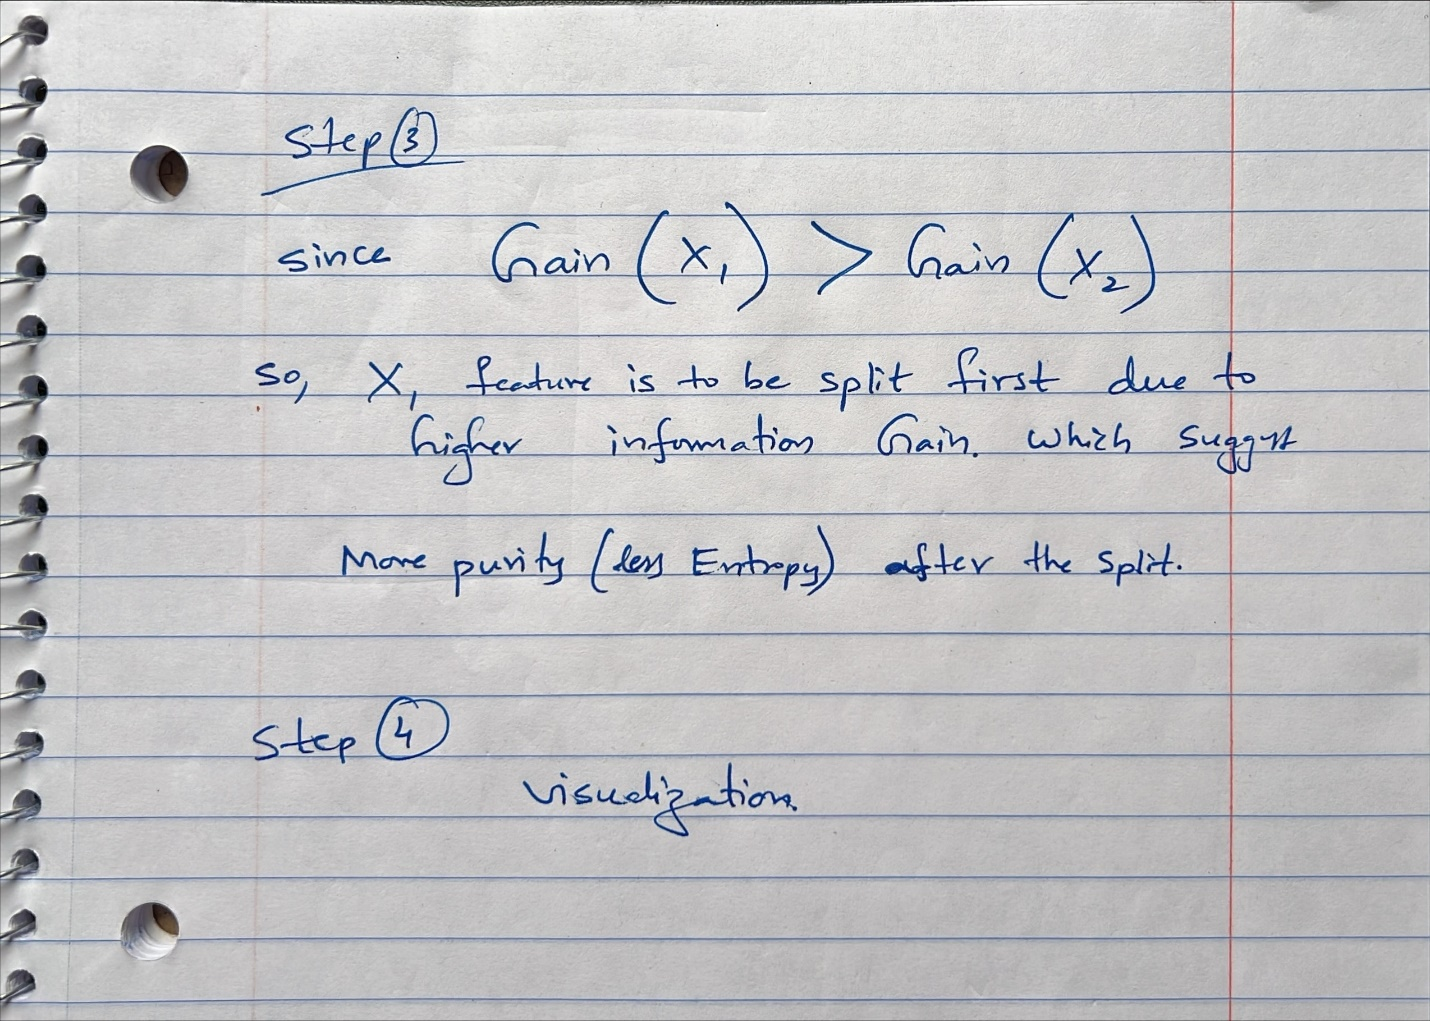 Step ③
since Gain (X₁) > Gain (X₂)
so, X₁ feature is to be split first due to
higher information Gain. which suggest
More purity (less Entropy) after the split.
Step ④
visualization